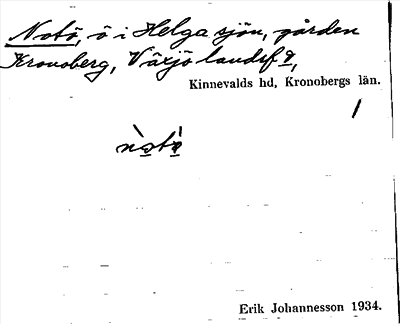 Notö, ö i Helga sjön, gården
Kronoberg, Växjö landsf,
Kinnevalds hd, Kronobergs län.
Erik Johannesson 1934.